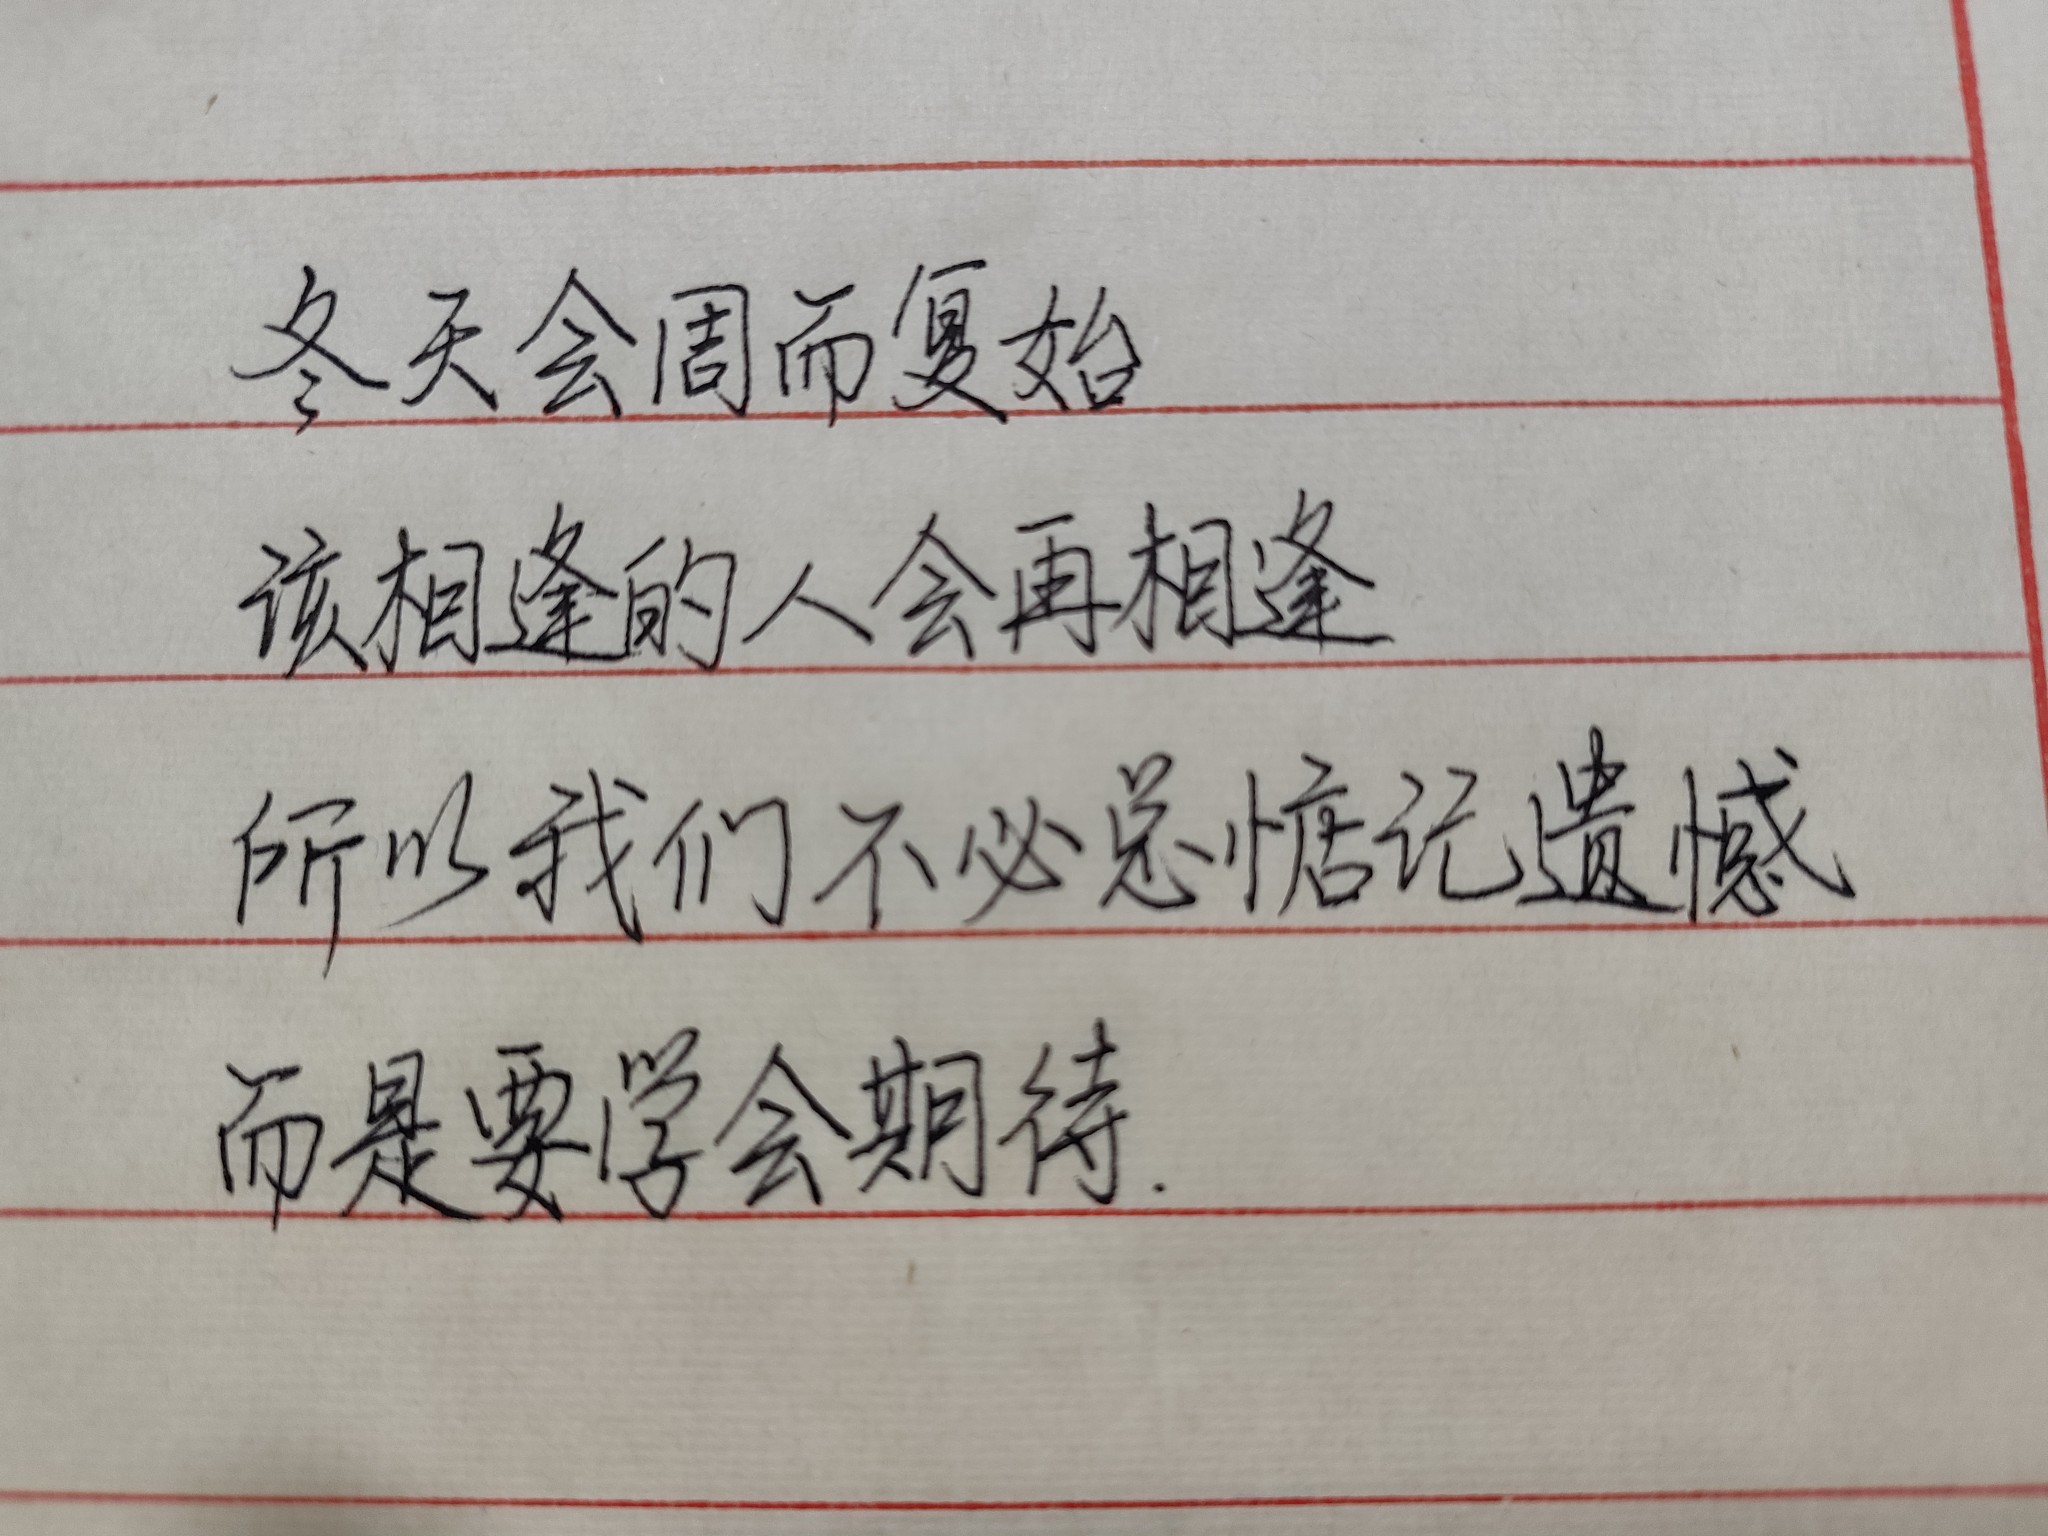 冬天会周而复始
该相逢的人会再相逢
所以我们不必总惦记遗憾
而是要学会期待.